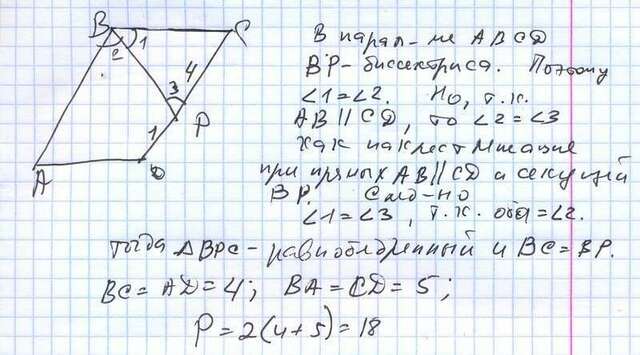 B 1 C
2
4
3
P
1
A
D
В парал-ме ABCD
BP - биссектриса. Поэтому
∠1=∠2. Но, т.к.
AB || CD, то ∠2=∠3
как накрест лежащие
при прямых AB || CD и секущей
BP. След-но
∠1=∠3, т.к. оба =∠2.
тогда ΔBPC - равнобедренный и BC = BP.
BC = AD = 4; BA = CD = 5;
P = 2(4+5) = 18